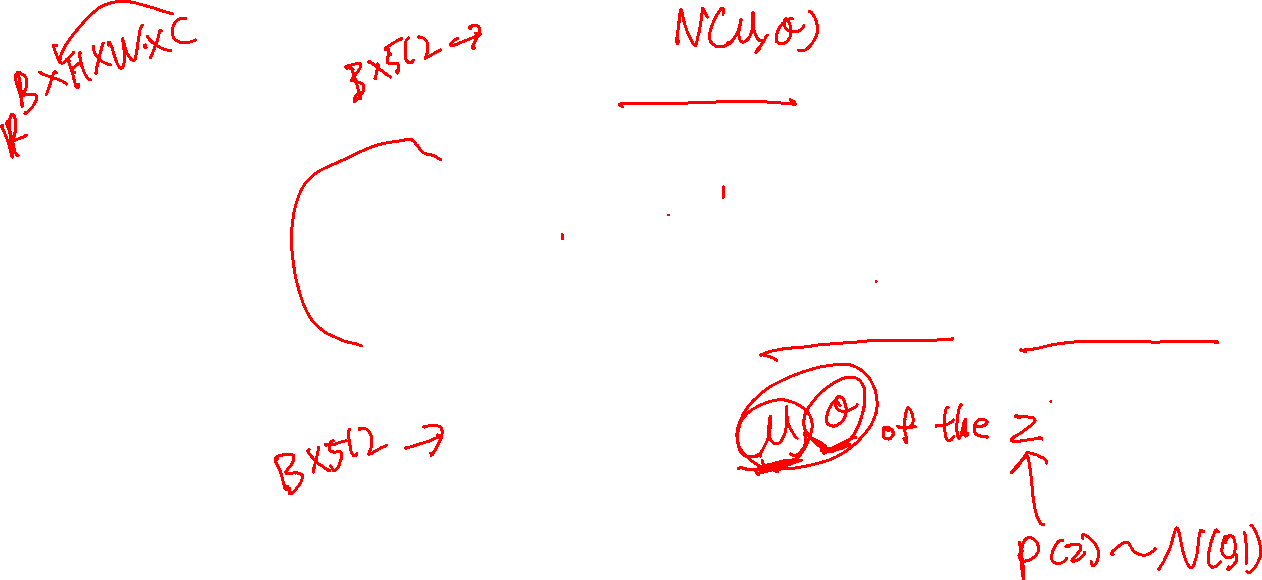 R B×H×W×C
B×512 →
N(μ,σ)
B×512 →
μ σ of the z
p(z)~N(0,1)